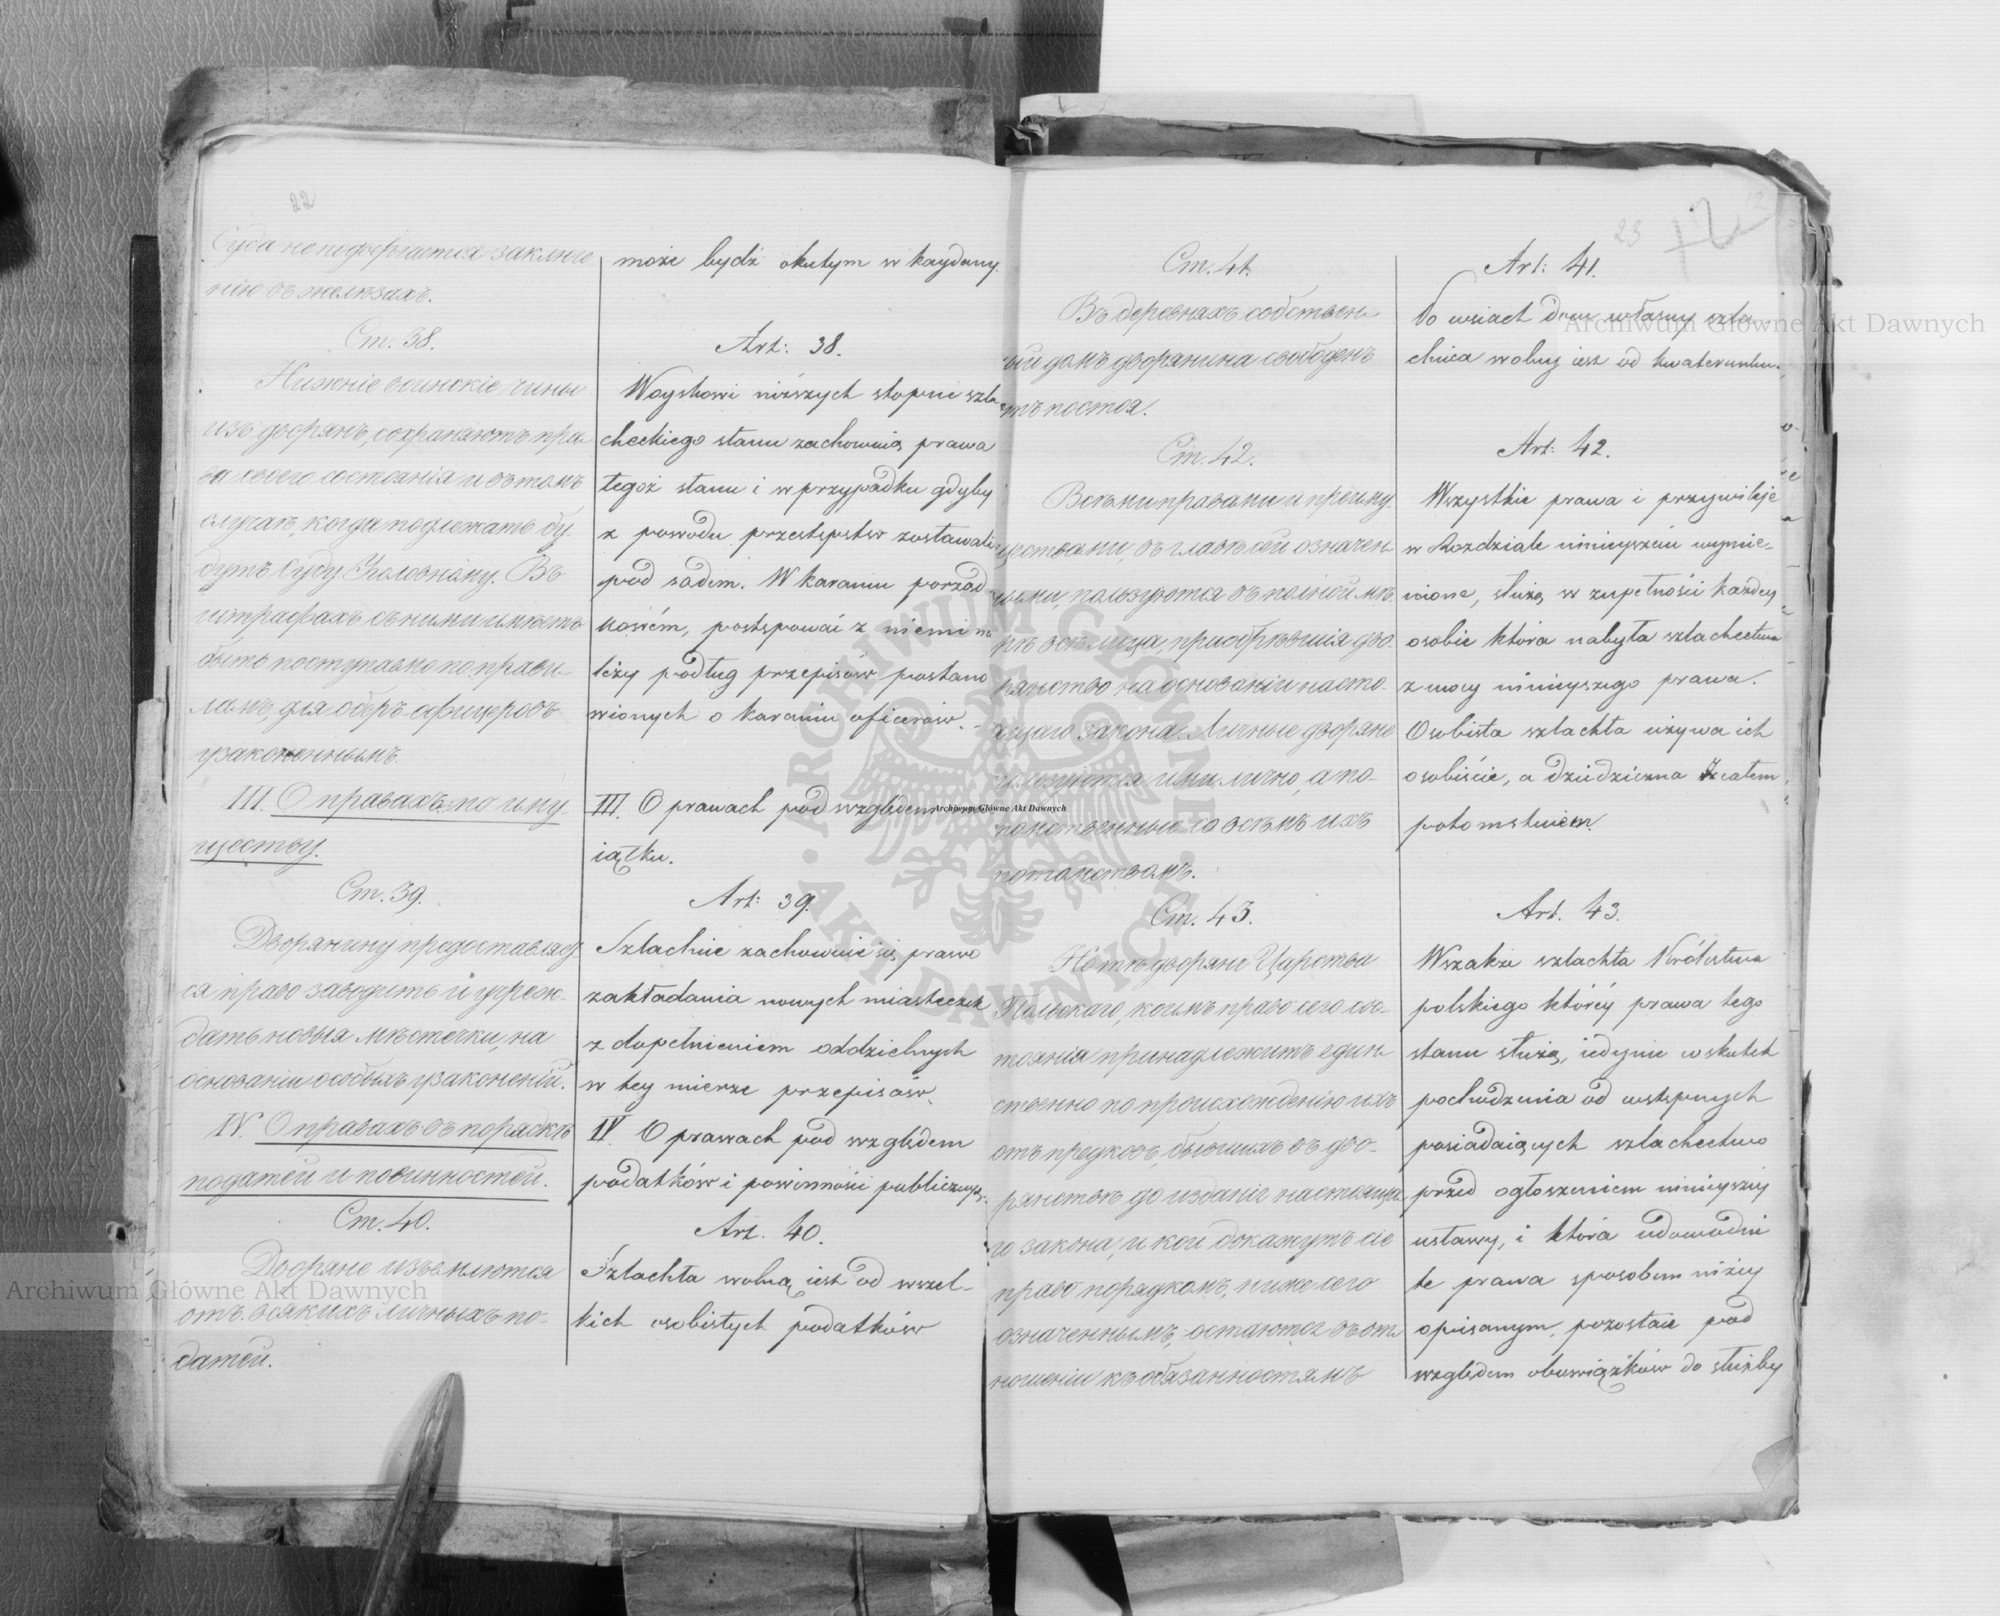 22
Суда не подвергается заключе
нію въ желѣзахъ.
Ст. 38.
Нижніе воинскіе чины
изъ дворянъ, сохраняютъ пра
ва своего состоянія и въ томъ
случаѣ, когда подлежать бу
дутъ Суду Уголовному. Въ
штрафахъ съ ними имѣетъ
быть поступаемо по прави
ламъ, для оберъ-офицеровъ
узаконеннымъ.
III. О правахъ по иму-
ществу.
Ст. 39.
Дворянину предоставляет
ся право заводить и учреж-
дать новыя мѣстечки, на
основаніи особыхъ узаконеній.
IV. О правахъ въ порядкѣ
податей и повинностей.
Ст. 40.
Дворяне изъемлются
отъ всякихъ личныхъ по-
датей.
może bydź okutym w kaydany.
Art: 38.
Woyskowi niższych stopni szla
checkiego stanu zachowuią prawa
tegoż stanu i w przypadku gdyby
z powodu przestępstw zostawali
pod sądem. W karaniu porząd
kowém, postępować z niemi na
leży podług przepisów postano
wionych o karaniu oficerów. -
III. O prawach pod względem ma-
iątku.
Art: 39.
Szlachcie zachowuie się prawo
zakładania nowych miasteczek
z dopełnieniem oddzielnych
w tey mierze przepisów.
IV. O prawach pod względem
podatków i powinności publicznych.
Art. 40.
Szlachta wolną iest od wszel-
kich osobistych podatków
23 12
Ст. 41.
Въ деревняхъ собствен
ный домъ дворянина свободенъ
отъ постоя.
Ст. 42.
Всѣми правами и преиму
ществами, въ главѣ сей означен
ными, пользуются въ полной мѣ
рѣ всѣ лица, пріобрѣвшія дво-
рянство на основаніи насто-
ящаго закона. Личные дворяне
пользуются ими лично, а по-
томственные со всѣмъ ихъ
потомствомъ.
Ст. 43.
Но тѣ дворяне Царства
Польскаго, коимъ право сего сос-
тоянія принадлежитъ един
ственно по происхожденію ихъ
отъ предковъ, бывшихъ въ дво-
рянствѣ до изданія настояща
го закона, и кои докажутъ сіе
право порядкомъ, ниже сего
означеннымъ, остаются въ от
ношеніи къ обязанностямъ
Art: 41.
Po wsiach dom własny szla-
chcica wolny iest od kwaterunku.
Art: 42.
Wszystkie prawa i przywileje
w Rozdziale ninieyszém wymie-
nione, służą w zupełności każdey
osobie która nabyła szlachectwa
z mocy ninieyszego prawa.
Osobista szlachta używa ich
osobiście, a dziedziczna z całem
potomstwem.
Art. 43.
Wszakże szlachta Królestwa
polskiego któréy prawa tego
stanu służą, iedynie w skutek
pochodzenia od wstępnych
posiadaiących szlachectwo
przed ogłoszeniem ninieyszey
ustawy, i która udowodni
te prawa sposobem niżey
opisanym, pozostaie pod
względem obowiązków do służby
Archiwum Główne Akt Dawnych
Archiwum Główne Akt Dawnych
Archiwum Główne Akt Dawnych
ARCHIWUM GŁÓWNE · AKT DAWNYCH ·